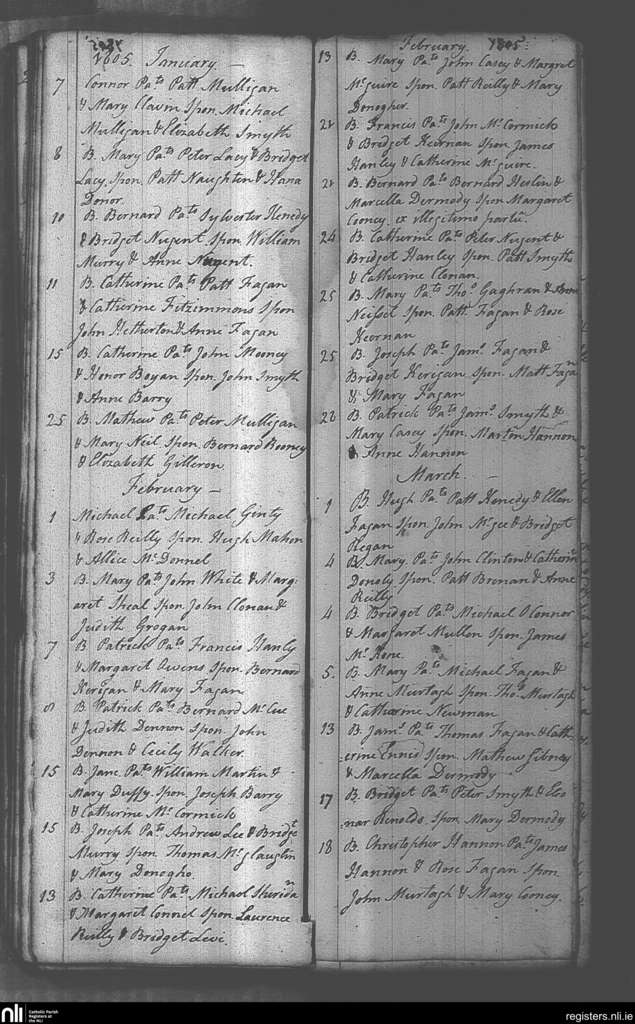 1805. January. —
7 Connor Pa.ts Patt Mulligan
& Mary Clavin Spon. Michael
Mulligan & Elizabeth Smyth
8 B. Mary Pa.ts Peter Lacy & Bridget
Lacy. Spon. Patt Naughton & Hana
Donor.
10 B. Bernard Pa.ts Sylvester Kenedy
& Bridget Nugent Spon. William
Murry & Anne Nugent.
11 B. Catherine Pa.ts Patt Fagan
& Catherine Fitzimmons Spon
John Hetherton & Anne Fagan
15 B. Catherine Pa.ts John Mooney
& Honor Boyan Spon. John Smyth
& Anne Barry
25 B. Mathew Pa.ts Peter Mulligan
& Mary Neil Spon. Bernard Rooney
& Elizabeth Gilleron.
February —
1 Michael Pa.ts Michael Ginty
& Rose Reilly Spon. Hugh Mahon
& Allice Mc.Donnel
3 B. Mary Pa.ts John White & Marg-
aret Sheal Spon. John Clonan &
Judith Grogan
7 B Patrick Pa.ts Francis Hanly
& Margaret Owens Spon. Bernard
Kerigan & Mary Fagan
8 B. Patrick Pa.ts Bernard Mc.Cue
& Judith Dennon Spon. John
Dennon & Cecily Walker.
15 B. Jane. Pa.ts William Martin &
Mary Duffy. Spon. Joseph Barry
& Catherine Mc.Cormick
15 B. Joseph Pa.ts Andrew Lee & Bridget
Murry Spon Thomas Mc.glauglin
& Mary Donogho.
13 B. Catherine Pa.ts Michael Sheridan
& Margaret Connel Spon. Laurence
Reilly & Bridget
February. 1805.
13 B. Mary Pa.ts John Casey & Margret
Mc.guire Spon. Patt Reilly & Mary
Donogher.
22 B. Francis Pa.ts John Mc.Cormick
& Bridget Keernan Spon James
Hanley & Catherine Mc.guire.
22 B. Bernard Pa.ts Bernard Heslin &
Marcella Dermody Spon Margaret
Cooney. ex illegitimo partu.
24 B. Catherine Pa.ts Peter Nugent &
Bridget Hanley Spon. Patt Smyth
& Catherine Clonan.
25 B. Mary Pa.ts Tho.s Gaghran &
Spon. Patt Fagan & Rose
Keernan
25 B. Joseph Pa.ts Jam.s Fagan &
Bridget Kerigan Spon. Matt Fagan
& Mary Fagan
28 B. Patrick Pa.ts Jam.s Smyth &
Mary Casey Spon. Martin Hannon
& Anne Hannon
March. —
1 B. Hugh Pa.ts Patt Kenedy & Ellen
Fagan Spon John Mc.gee & Bridget
Regan
4 B. Mary. Pa.ts John Clinton & Catherin
Donoly Spon. Patt Bronan & Anne
Reilly
4 B. Bridget Pa.ts Michael O Connor
& Margaret Mullen Spon. James
Mc.Kene.
5. B. Mary Pa.ts Michael Fagan &
Anne Murtagh Spon. Tho.s Murtagh
& Catherine Newman
13 B. Jam.s Pa.ts Thomas Fagan & Cath-
erine Ennid Spon. Mathew Gibney
& Marcella Dermody
17 B. Bridget Pa.ts Peter Smyth & Eleo
nar Renolds. Spon Mary Dermody
18 B. Christopher Hannon Pa.ts James
Hannon & Rose Fagan Spon
John Murtagh & Mary Cooney.
nli Catholic Parish
Registers at
the NLI
registers.nli.ie